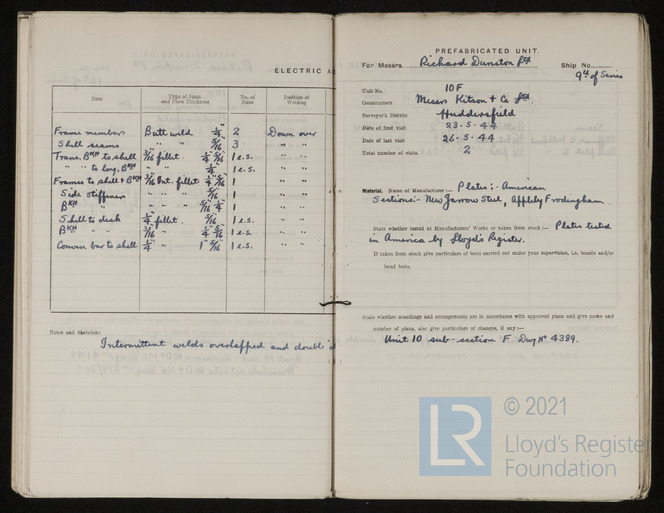 ELECTRIC
Item Type of Joint and Plate Thickness No. of Runs Position of Welding
Frame members Butt weld 1/4" 2 Down over
Shell seams " " 5/16 3 " "
Trans. BKH to shell 3/16 fillet. 1/4" 5/16 1 e.s. " "
" " to long. BKH 3/16 " 1/4" 1 e.s. " "
Frames to shell & BKH 3/16 Int. fillet 1/4" 5/16 1 " "
Side stiffeners " " " 5/16 1 " "
BKH " " " " " 1/4" 1 " "
Shell to deck 1/4" fillet. 5/16 1 e.s. " "
BKH " " 3/16 " 1/4" 5/16 1 e.s. " "
Convex bar to shell 1/4" " 1" 5/16 1 e.s. " "
Notes and Sketches:
Intermittent welds overlapped and double
PREFABRICATED UNIT.
For Messrs. Richard Dunston Ltd Ship No.
9th of Series
Unit No. 10F
Constructors Messrs Kitson & Co Ltd.
Surveyor's District Huddersfield
Date of first visit 23.5.44
Date of last visit 26.5.44
Total number of visits 2
Material. Name of Manufacturer:— Plates:- American
Sections:- New Jarrow Steel, Appleby Frodingham.
State whether tested at Manufacturers' Works or taken from stock:— Plates tested
in America by Lloyd's Register.
If taken from stock give particulars of tests carried out under your supervision, i.e. tensile and/or
bend tests.
State whether scantlings and arrangements are in accordance with approved plans and give names and
number of plans, also give particulars of changes, if any:—
Unit 10 sub-section F Dwg No 4389.
LR
© 2021
Lloyd's Register
Foundation